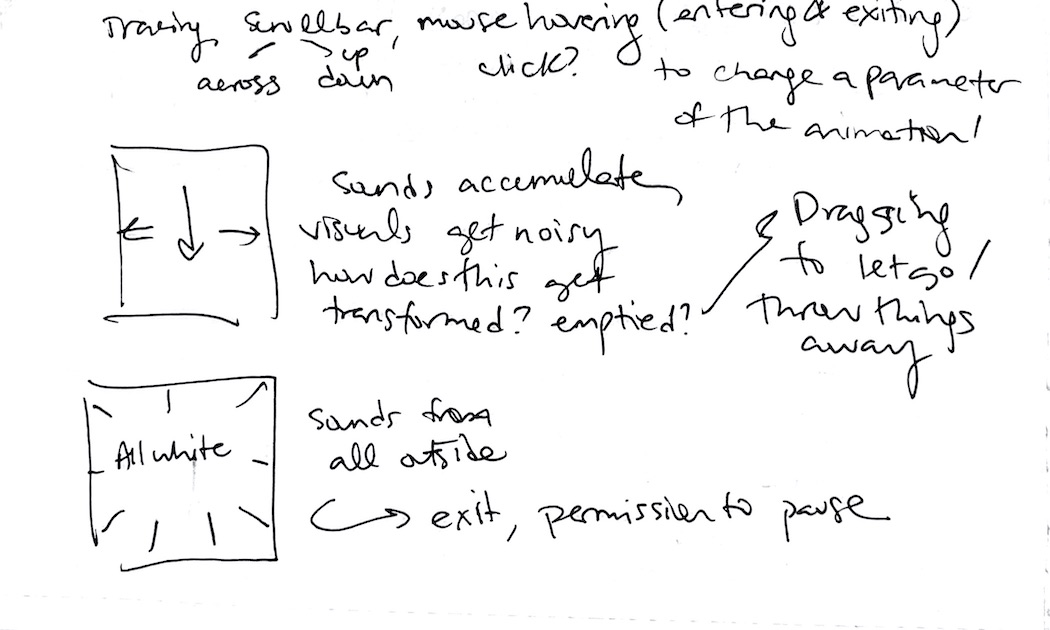 Tracing scrollbar, mouse hovering (entering & exiting)
across up down click? to change a parameter
of the animation!
Sands accumulate,
visuals get noisy
how does this get
transformed? emptied?
Dragging
to let go /
throw things
away
All white
Sands from
all outside
exit, permission to pause